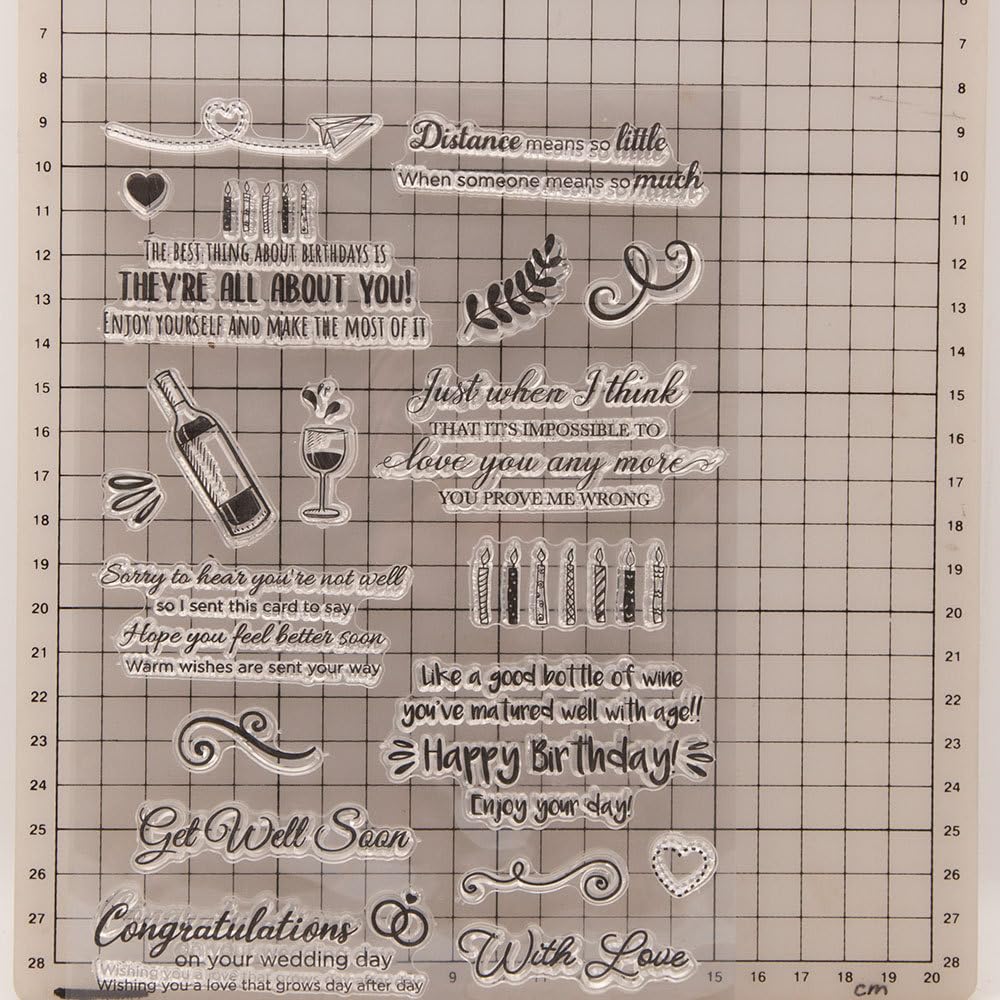 Distance means so little
When someone means so much
THE BEST THING ABOUT BIRTHDAYS IS
THEY'RE ALL ABOUT YOU!
ENJOY YOURSELF AND MAKE THE MOST OF IT
Just when I think
THAT IT'S IMPOSSIBLE TO
love you any more
YOU PROVE ME WRONG
Sorry to hear you're not well
so I sent this card to say
Hope you feel better soon
Warm wishes are sent your way
Like a good bottle of wine
you've matured well with age!!
Happy Birthday!
Enjoy your day!
Get Well Soon
Congratulations
on your wedding day
Wishing you a love that grows day after day
With Love
7
8
9
10
11
12
13
14
15
16
17
18
19
20
21
22
23
24
25
26
27
28
6
7
8
9
10
11
12
13
14
15
16
17
18
19
20
21
22
23
24
25
26
27
28
9 15 16 17 18 19 20
cm